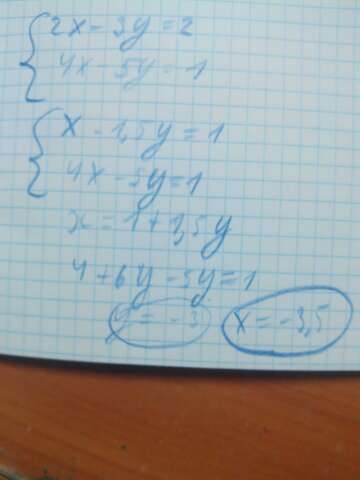 2x - 3y = 2
4x - 5y = 1
x - 1,5y = 1
4x - 5y = 1
x = 1 + 1,5y
4 + 6y - 5y = 1
y = -3 x = -3,5